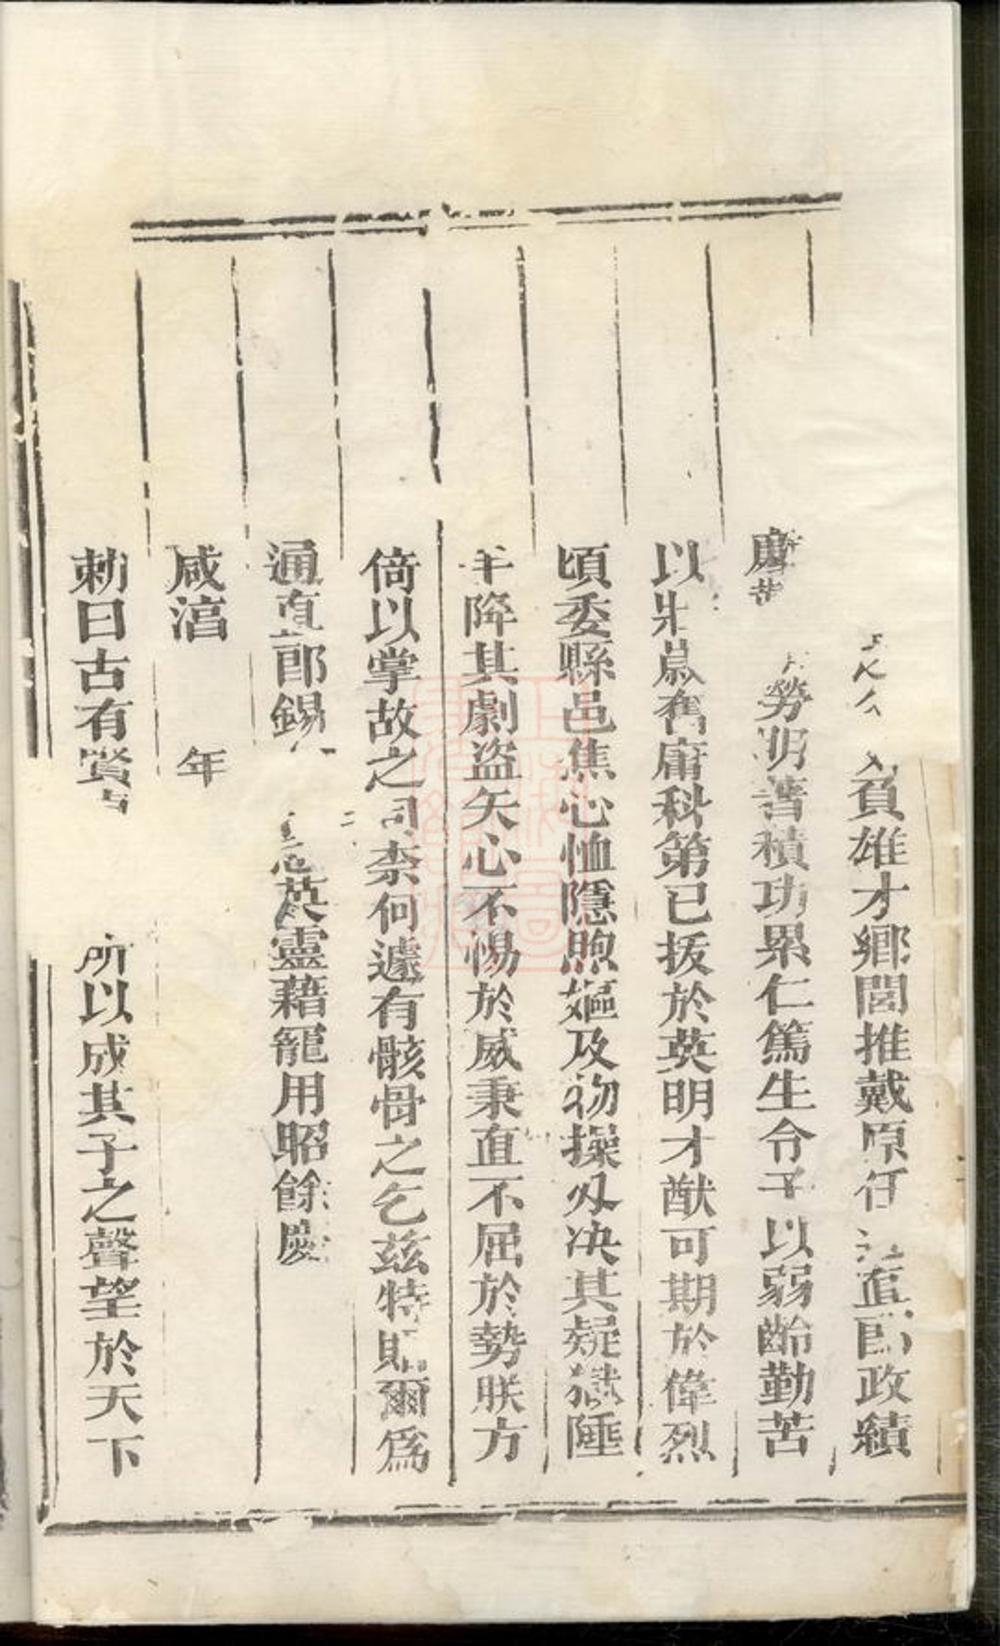 負雄才鄉閭推戴原任直郎政績
勞明著積功累仁篤生令子以弱齡勤苦
以壯舊庸科第已拔於英明才猷可期於偉烈
頃委縣邑焦心恤隱煦嫗及物操刃决其疑獄陲
羊降其劇盜矢心不惕於威秉直不屈於勢朕方
倚以掌故之司柰何遽有骸骨之乞兹特貤爾爲
通直郎錫英靈藉寵用昭餘慶
咸淳 年
勅曰古有賢所以成其子之聲望於天下